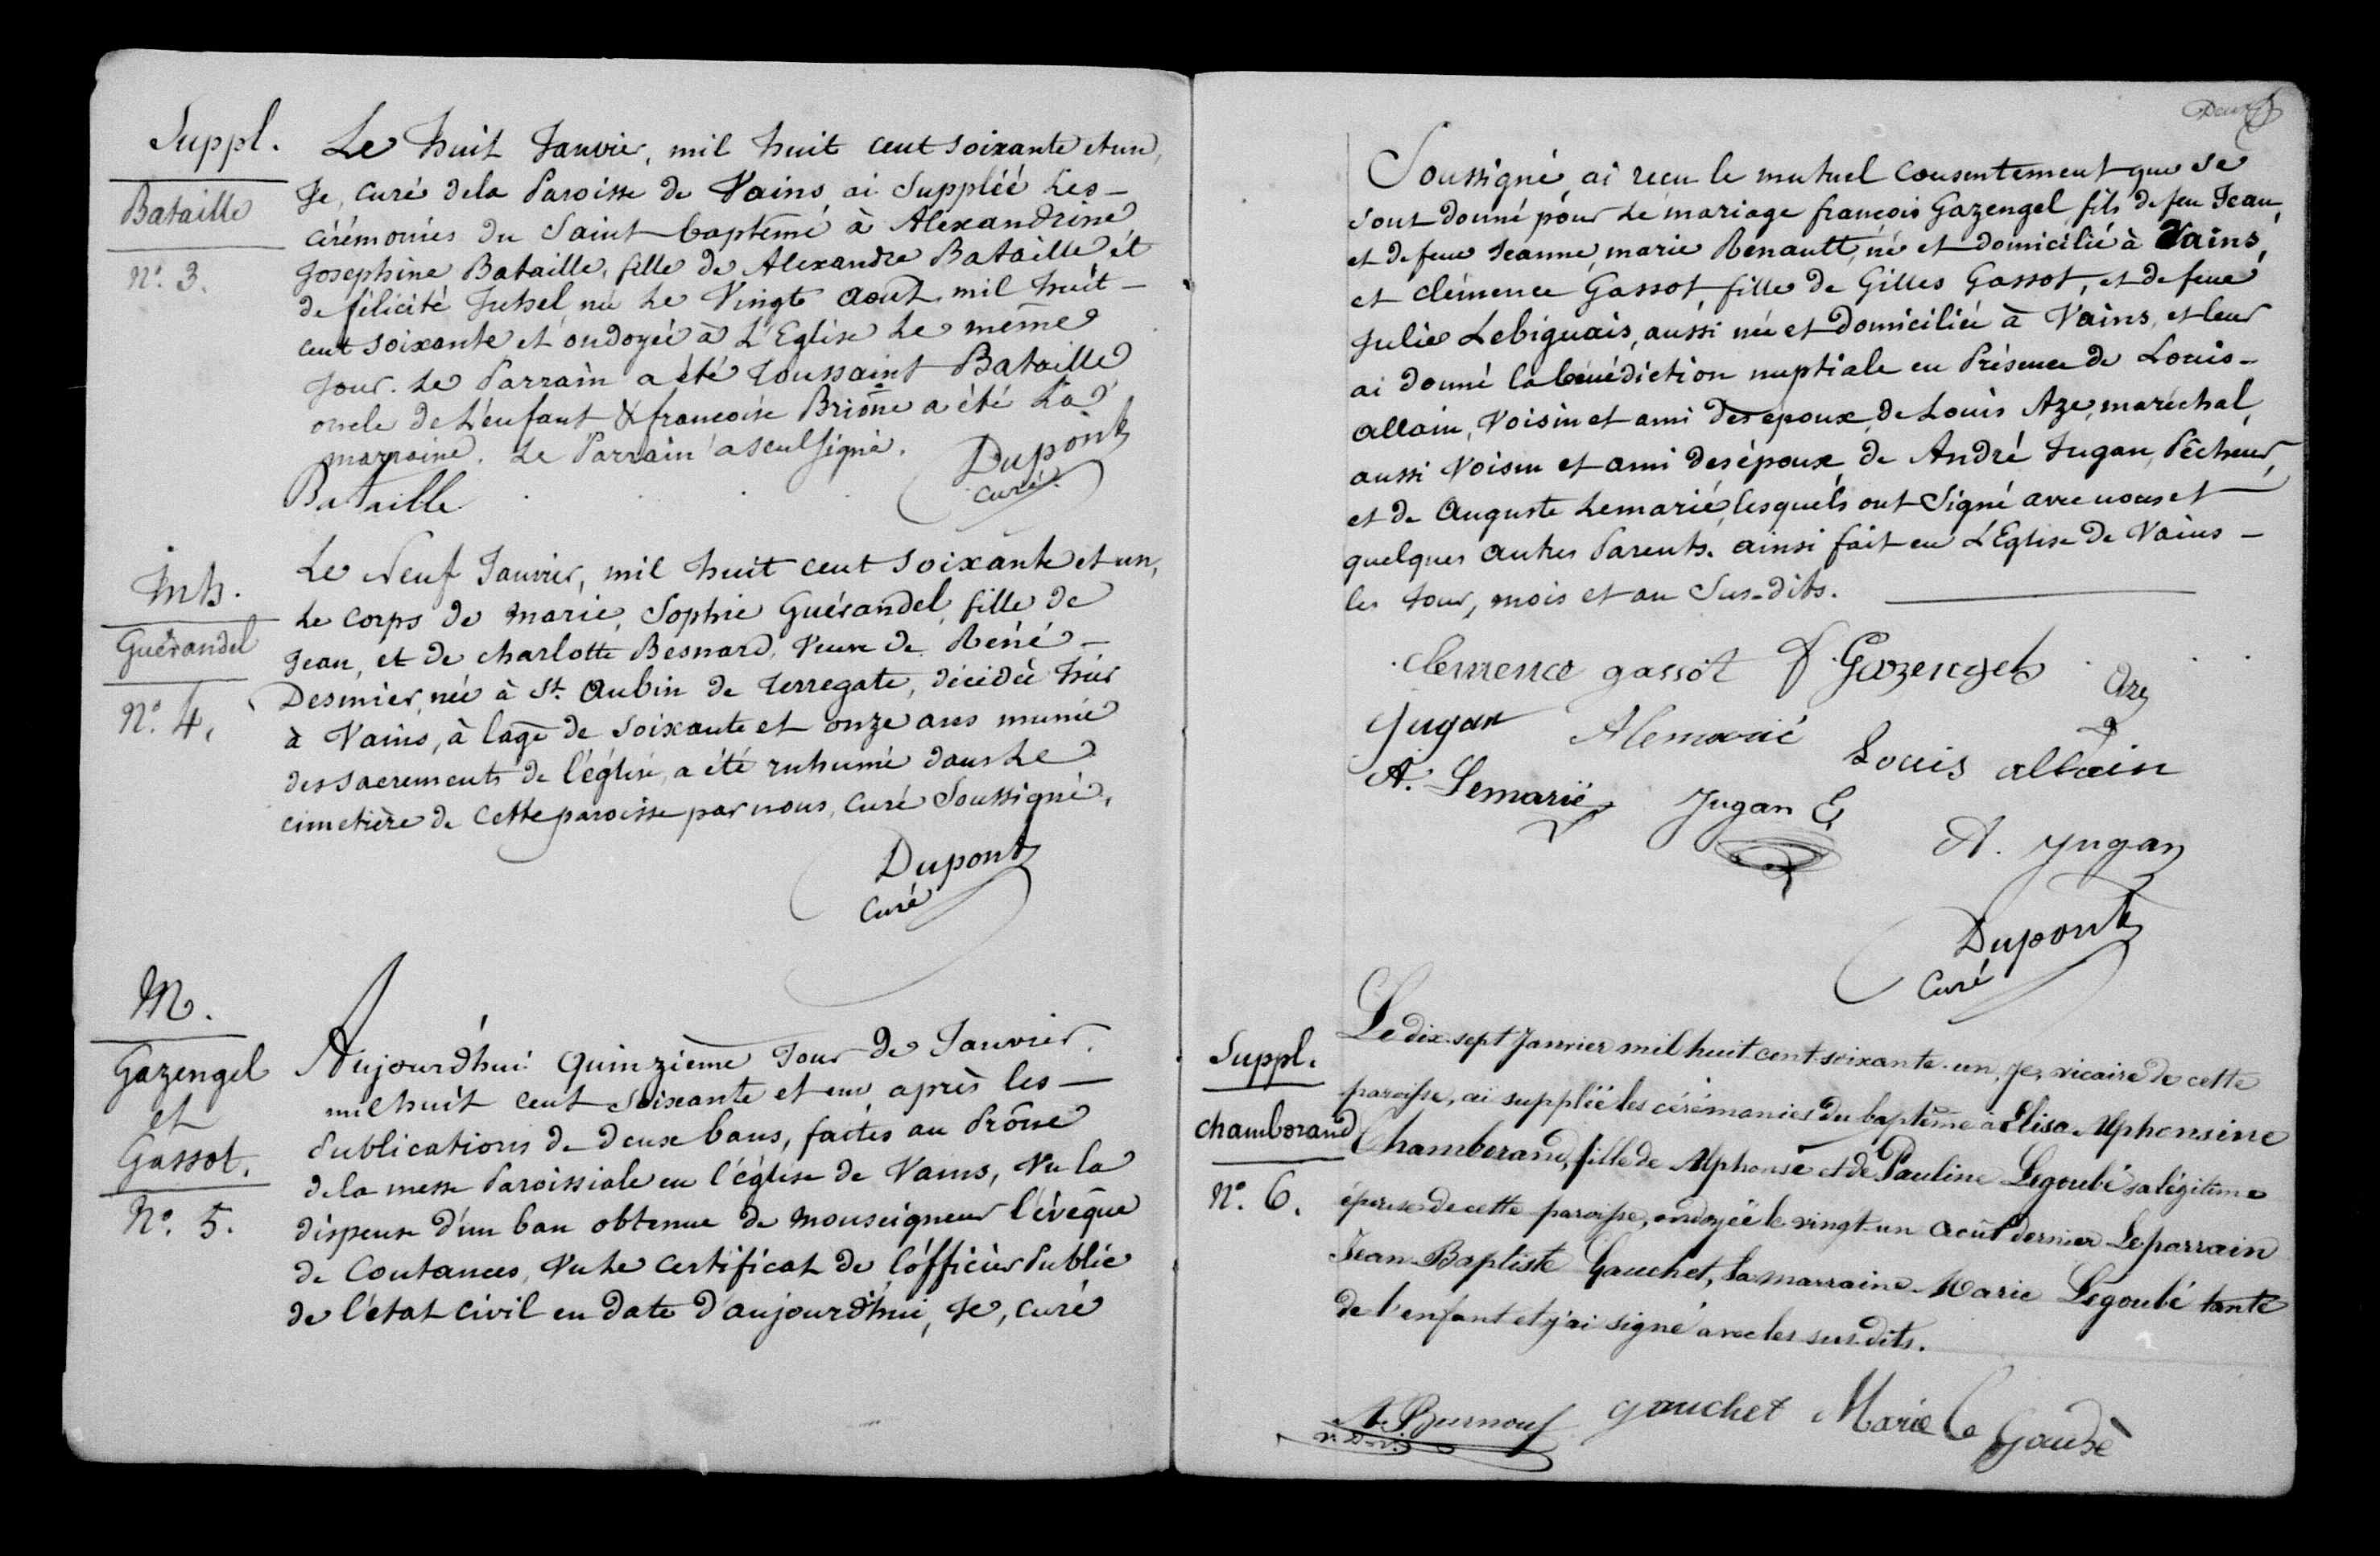 Suppl.
Bataille
N.º 3.
Le huit Janvier, mil huit cent soixante et un,
Je, curé de la Paroisse de Vains, ai Suppléé Les -
cérémonies du Saint baptême à Alexandrine
Josephine Bataille, fille de Alexandre Bataille et
de félicité Juhel, née Le Vingt août mil huit -
cent soixante et ondoyée à L'Eglise Le même
jour. Le Parrain a été Toussaint Bataille
oncle de L'enfant & françoise Brionne a été La
marraine. Le Parrain a seul signé.
Bataille
Dupont
curé
Inh.
Guérandel
N.º 4.
Le Neuf Janvier, mil huit cent soixante et un,
Le corps de Marie, Sophie Guérandel, fille de
Jean, et de charlotte Besnard, Veuve de Réné -
Desmier, née à St. Aubin de Terregate, décédée hier
à Vains, à l'age de soixante et onze ans munie
des sacrements de l'église, a été inhumé dans Le
cimetière de cette paroisse par nous, curé Soussigné.
Dupont
curé
M.
Gazengel
et
Gassot.
N.º 5.
Aujourd'hui quinzième Jour de Janvier,
mil huit cent soixante et un, après les -
Publications de deux bans, faites au Prône
de la messe Paroissiale en l'église de Vains, Vu la
dispense d'un ban obtenue de Monseigneur l'évêque
de Coutances, Vu Le certificat de l'officier Public
de l'état civil en date d'aujourd'hui, Je, curé
Deux
Soussigné, ai reçu le mutuel consentement que se
sont donné pour Le mariage françois Gazengel fils de feu Jean,
et de feue Jeanne, marie Renault, né et domicilié à Vains,
et clémence Gassot, fille de Gilles Gassot, et de feue
Julie Lebiguais, aussi née et domiciliée à Vains, et leur
ai donné la bénédiction nuptiale en Présence de Louis -
Allain, Voisin et ami des epoux, de Louis Aze, maréchal,
aussi Voisin et ami des époux, de André Jugan, Pêcheur,
et de Auguste Lemarié, lesquels ont Signé avec nous et
quelques autres Parents. ainsi fait en L'Eglise de Vains -
les Jour, mois et an Sus-dits.
clemence gassot F. Gazengel Aze
Jugan Alemarié Louis allain
A. Lemarié Jugan E
A. Jugan
Dupont
Curé
Suppl.
Chamborand
N.º 6.
Le dix-sept Janvier mil huit cent soixante-un, je, vicaire de cette
paroisse, ai suppléé les cérémonies du baptême à Elisa Alphonsine
Chamborand, fille de Alphonse et de Pauline Legoubé sa légitime
épouse de cette paroisse, ondoyée le vingt-un août dernier Le parrain
Jean-Baptiste Gauchet, La marraine Marie Legoubé tante
de l'enfant et j'ai signé avec les sus-dits.
Burnouf gauchet Marie Le